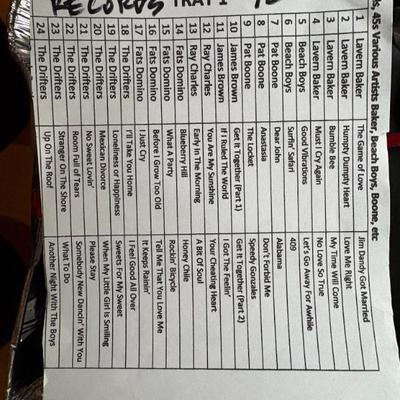 RECORDS TRAY 1
45s Various Artists Baker, Beach Boys, Boone, etc
1 Lavern Baker The Game of Love Jim Dandy Got Married
2 Lavern Baker Humpty Dumpty Heart Love Me Right
3 Lavern Baker Bumble Bee My Time Will Come
4 Lavern Baker Must I Cry Again No Love So True
5 Beach Boys Good Vibrations Let's Go Away For Awhile
6 Beach Boys Surfin' Safari 409
7 Pat Boone Dear John Alabama
8 Pat Boone Anastasia Don't Forbid Me
9 Pat Boone The Locket Speedy Gonzales
10 James Brown Get It Together (Part 1) Get It Together (Part 2)
11 James Brown If I Ruled The World I Got The Feelin'
12 Ray Charles You Are My Sunshine Your Cheating Heart
13 Ray Charles Early In The Morning A Bit Of Soul
14 Fats Domino Blueberry Hill Honey Chile
15 Fats Domino What A Party Rockin' Bicycle
16 Fats Domino Before I Grow Too Old Tell Me That You Love Me
17 Fats Domino I Just Cry It Keeps Rainin'
18 The Drifters I'll Take You Home I Feel Good All Over
19 The Drifters Loneliness or Happiness Sweets For My Sweet
20 The Drifters Mexican Divorce When My Little Girl Is Smiling
21 The Drifters No Sweet Lovin' Please Stay
22 The Drifters Room Full of Tears Somebody New Dancin' With You
23 The Drifters Stranger On The Shore What To Do
24 The Drifters Up On The Roof Another Night With The Boys